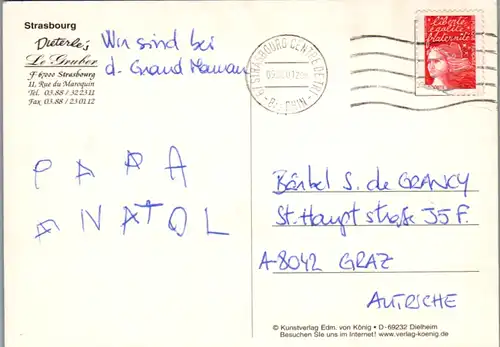 Strasbourg
Dieterle's
Le Gruber
F 67000 Strasbourg
11, Rue du Maroquin
Tél. 03.88 / 32 23 11
Fax 03.88 / 23 01 12
Wir sind bei
d. Grand Maman
PAPA
ANATOL
67 STRASBOURG CENTRE DE TRI
BAS RHIN
liberté
égalité
fraternité
Bärbel S. de GRANCY
St. Haupt straße 35 F.
A-8042 GRAZ
AUTRICHE
© Kunstverlag Edm. von König • D-69232 Dielheim
Besuchen Sie uns im Internet! www.verlag-koenig.de